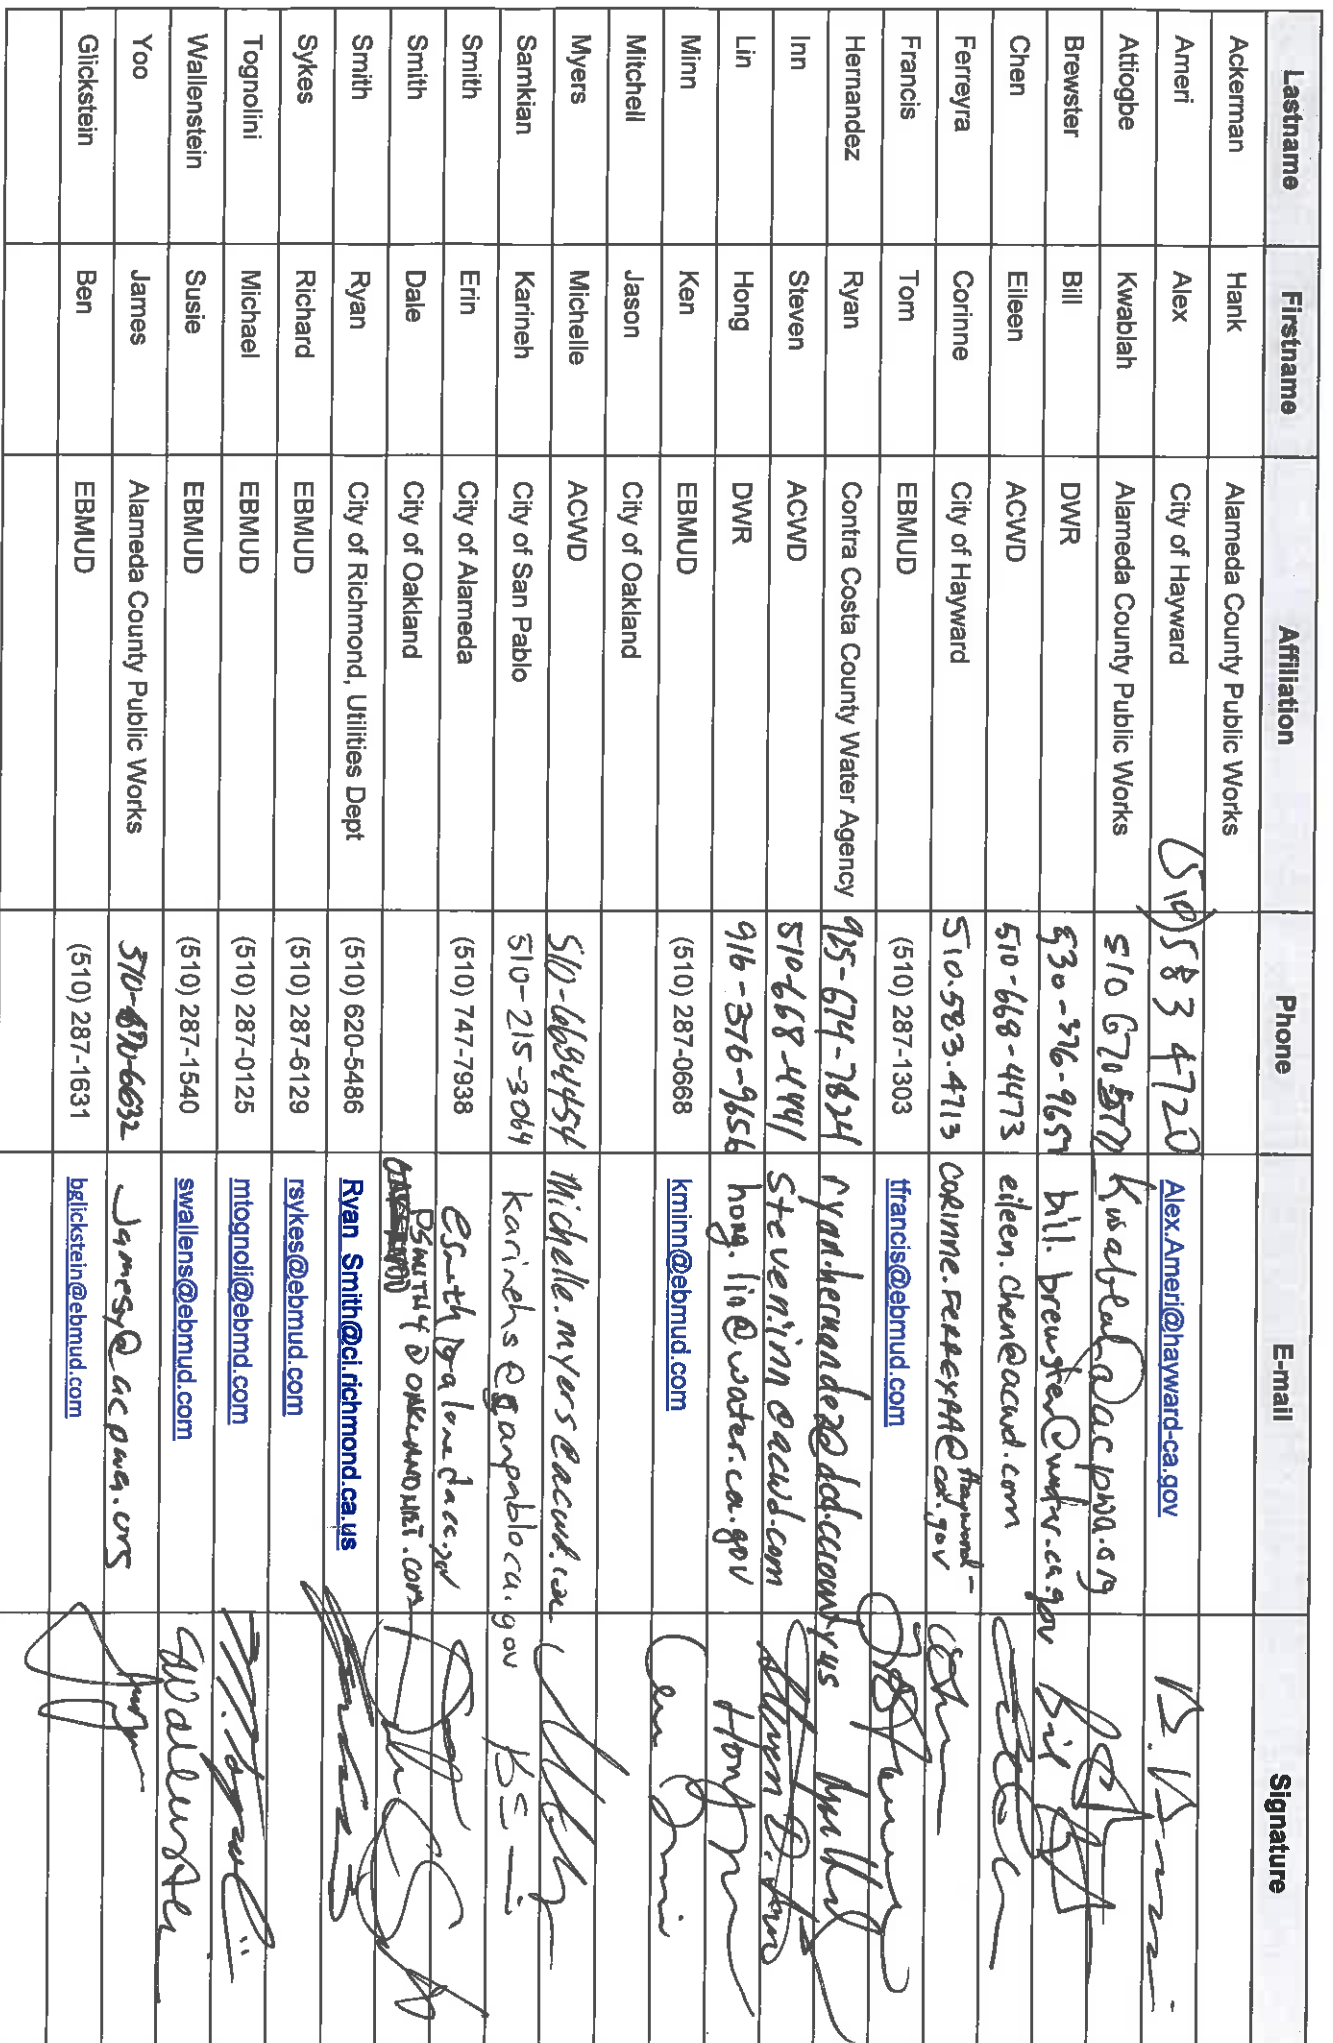 Lastname Firstname Affiliation Phone E-mail Signature
Ackerman Hank Alameda County Public Works
Ameri Alex City of Hayward (510) 583 4720 Alex.Ameri@hayward-ca.gov
Attiogbe Kwablah Alameda County Public Works 510 670 Kwablah@acpwa.org
Brewster Bill DWR 530-376-9657 bill.brewster@water.ca.gov Bill
Chen Eileen ACWD 510-668-4473 eileen.chen@acwd.com
Ferreyra Corinne City of Hayward 510.583.4713 CORINNE.FERREYRA@Hayward-ca.gov
Francis Tom EBMUD (510) 287-1303 tfrancis@ebmud.com
Hernandez Ryan Contra Costa County Water Agency 925-674-7824 ryan.hernandez@dcd.cccounty.us
Inn Steven ACWD 510-668-4441 steven.inn@acwd.com Steven D. Inn
Lin Hong DWR 916-376-9656 hong.lin@water.ca.gov Hong
Minn Ken EBMUD (510) 287-0668 kminn@ebmud.com
Mitchell Jason City of Oakland
Myers Michelle ACWD 510-6684454 Michelle.myers@acwd.com
Samkian Karineh City of San Pablo 510-215-3064 karinehs@sanpabloca.gov
Smith Erin City of Alameda (510) 747-7938 esmith@alamedaca.gov
Smith Dale City of Oakland DSMITH4@OAKLANDNET.COM
Smith Ryan City of Richmond, Utilities Dept (510) 620-5486 Ryan_Smith@ci.richmond.ca.us
Sykes Richard EBMUD (510) 287-6129 rsykes@ebmud.com
Tognolini Michael EBMUD (510) 287-0125 mtognoli@ebmd.com
Wallenstein Susie EBMUD (510) 287-1540 swallens@ebmud.com SWallenstein
Yoo James Alameda County Public Works 510-670-6632 Jamesy@acpwa.org
Glickstein Ben EBMUD (510) 287-1631 bglickstein@ebmud.com